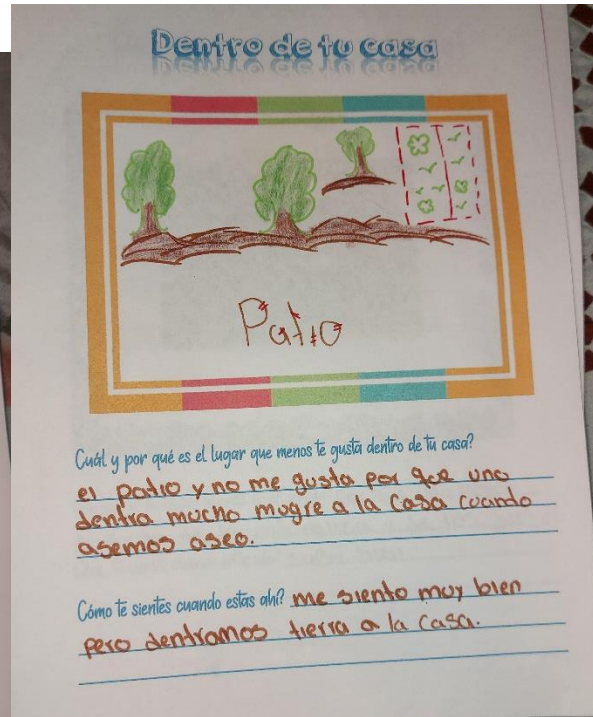 Dentro de tu casa
Patio
Cuál y por qué es el lugar que menos te gusta dentro de tu casa?
el patio y no me gusta por que uno
dentra mucho mugre a la casa cuando
asemos aseo.
Cómo te sientes cuando estas ahí? me siento muy bien
pero dentramos tierra a la casa.